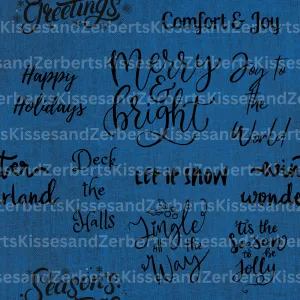 Greetings
Comfort & Joy
Merry
&
bright
Happy
Holidays
Joy to
the
World!
KissesandZerberts
Deck
the
Halls
LET IT SNOW
wonde
Jingle
All the
Way
'tis the
Season
to be
Jolly
Season's